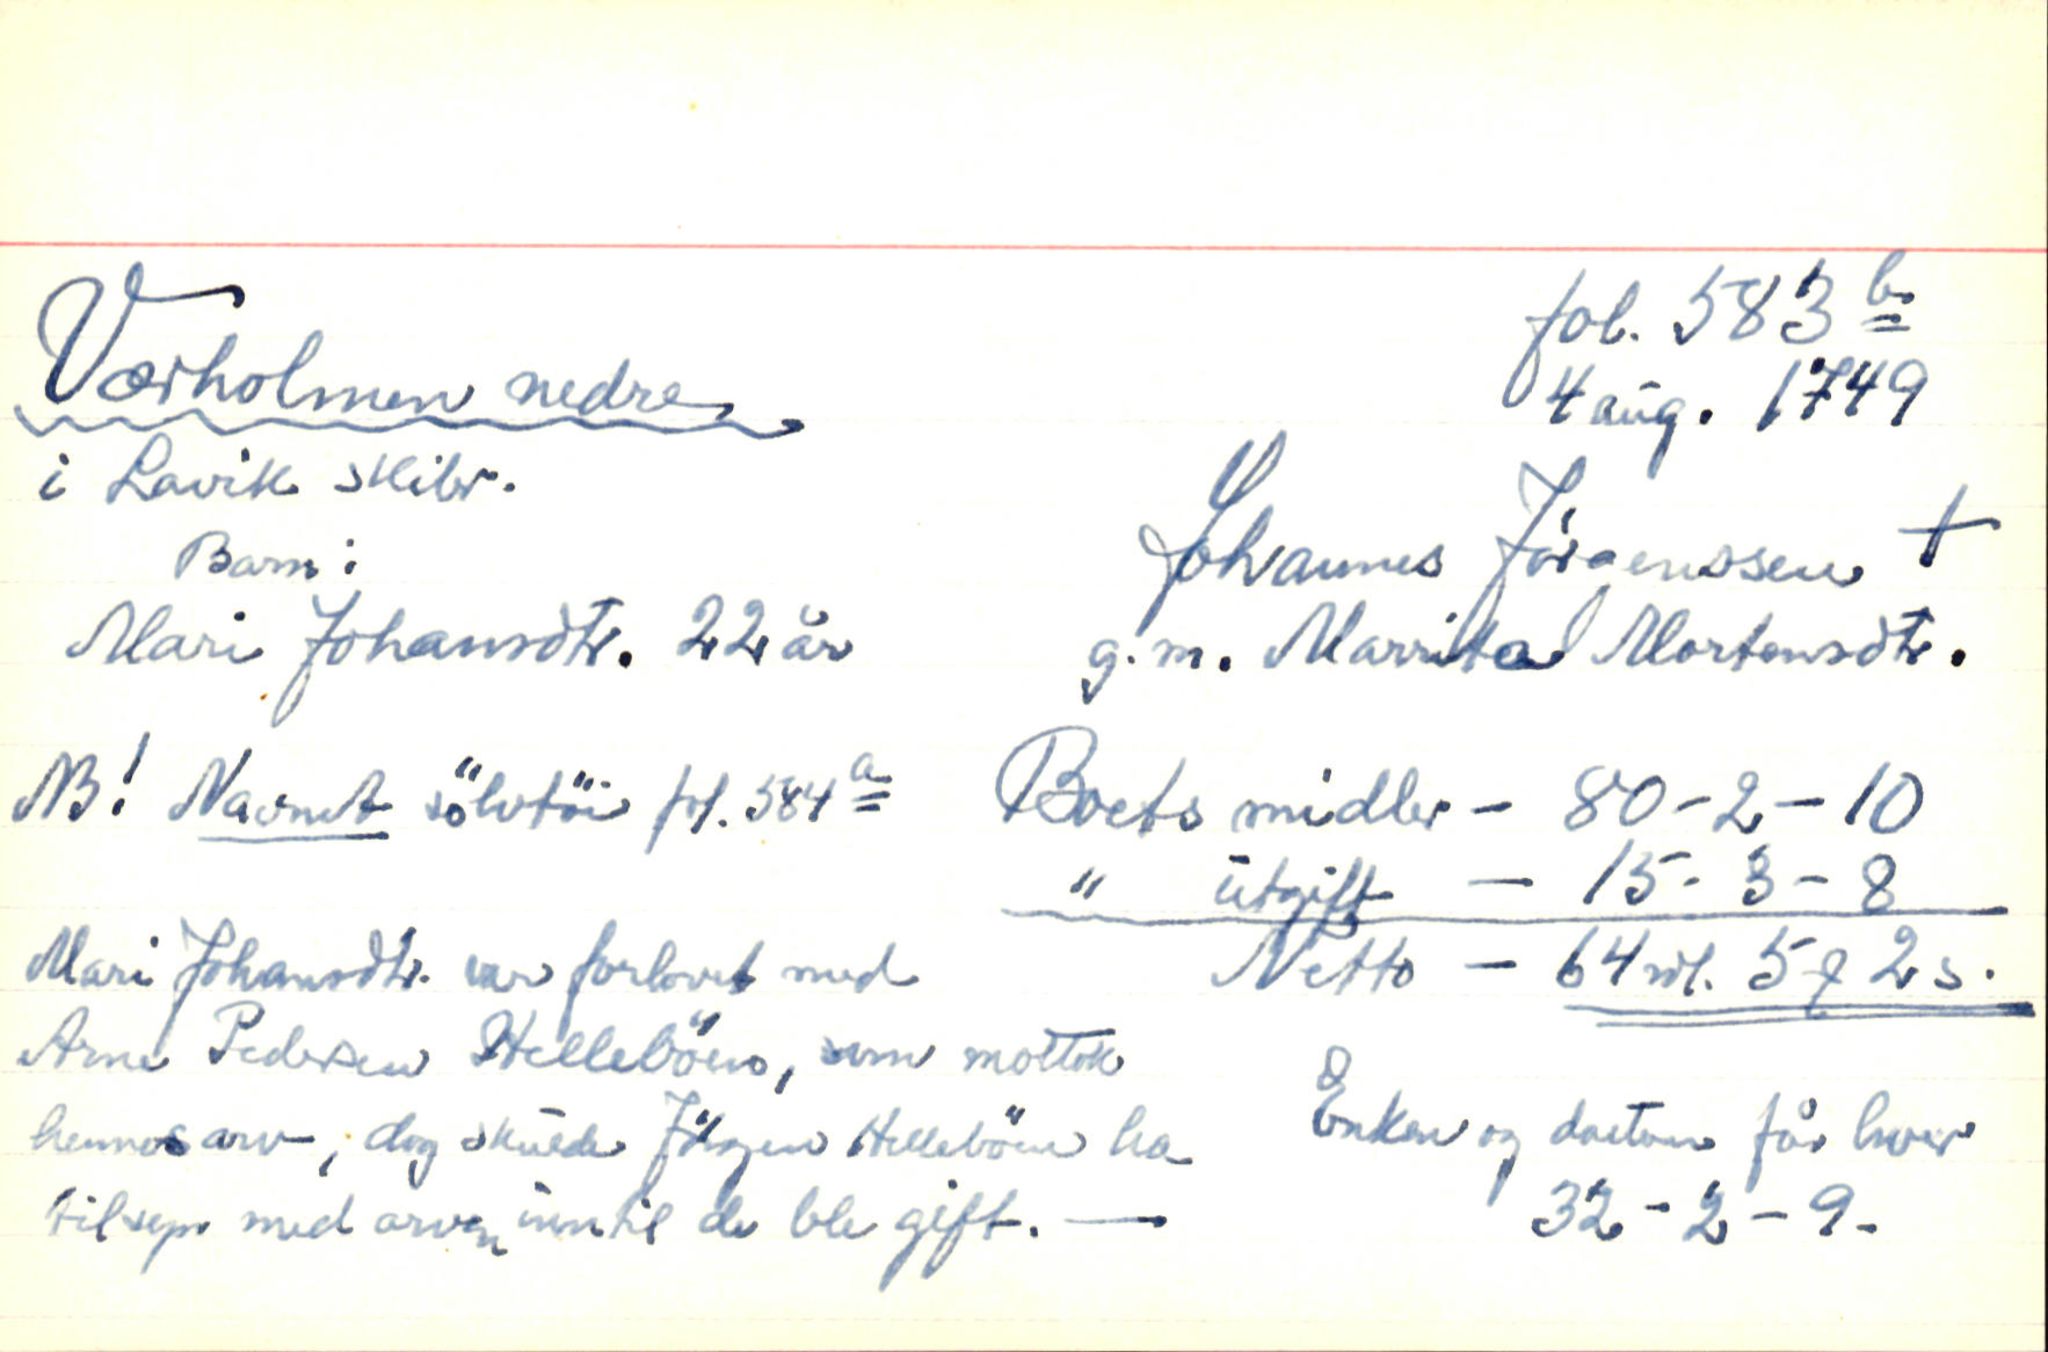 Værholmen nedre
i Lavik skibr.
Barn:
Mari Johansdtr. 22 år
NB! Navnet sölvtöi fol. 584 a
Mari Johansdtr. var forlovet med
Arne Pedersen Hellebö, som mottok
hennes arv, dog skulde Jörgen Hellebö ha
tilsyn med arven inntil de ble gift. —
fol. 583 b
4 aug. 1749
Johannes Jörgenssen †
g.m. Marrita Mortensdtr.
Boets midler - 80 - 2 - 10
" utgift - 15 - 3 - 8
Netto - 64 rdl. 5 ƒ 2 s.
Enken og datteren får hver
32 - 2 - 9 -